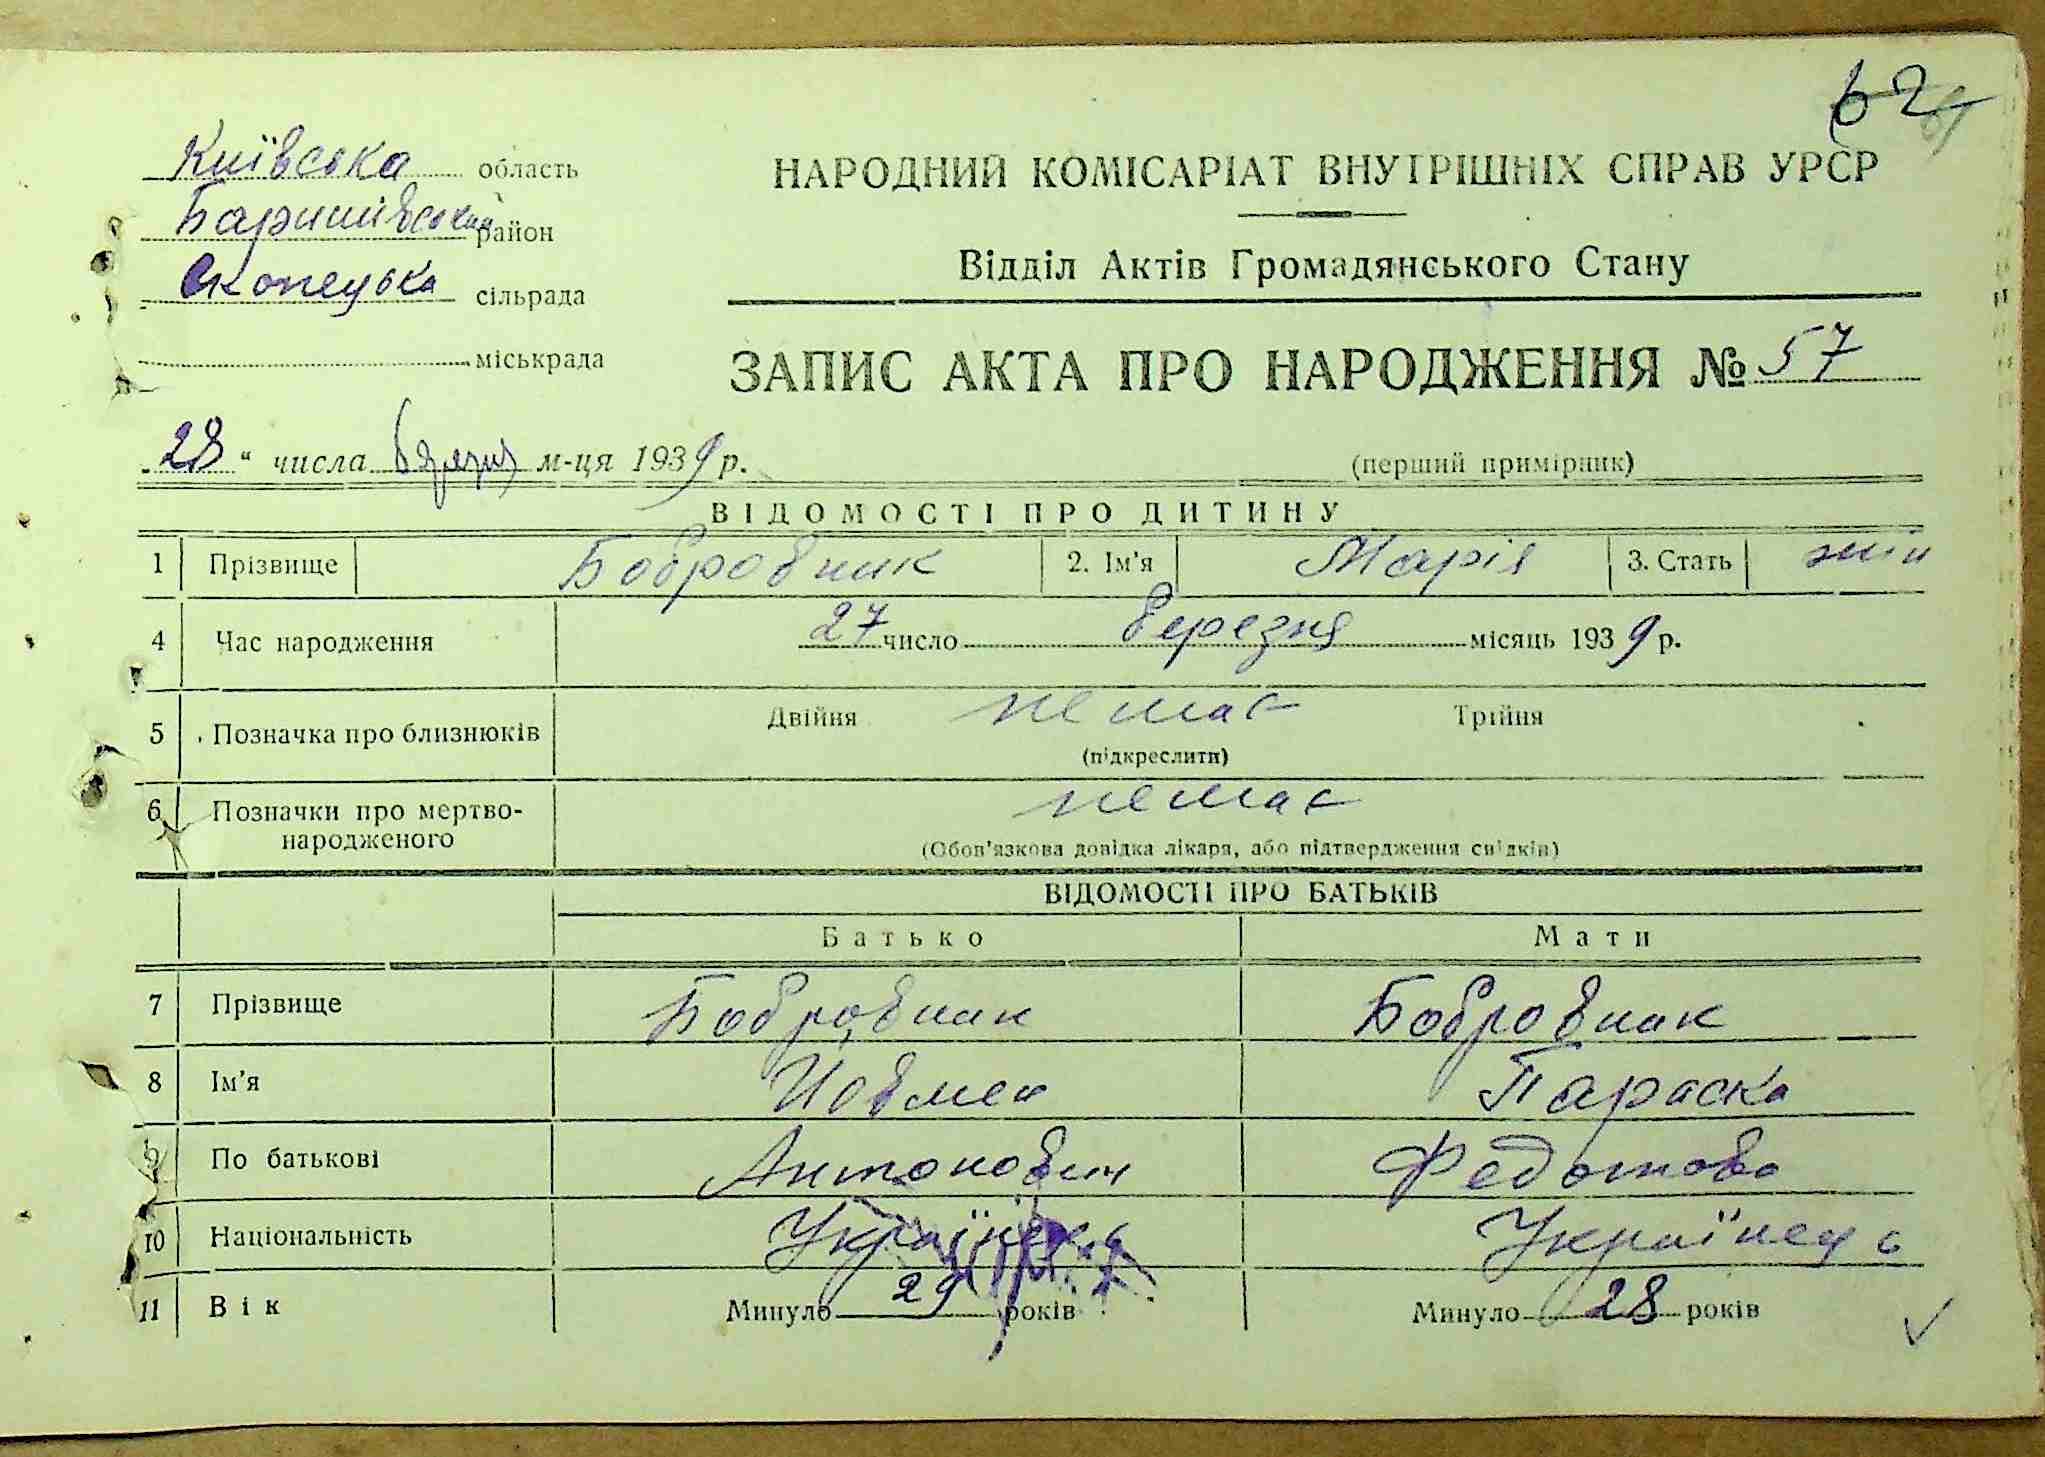 62
Київська область
Баришівський район
Скопецька сільрада
міськрада
НАРОДНИЙ КОМІСАРІАТ ВНУТРІШНІХ СПРАВ УРСР
Відділ Актів Громадянського Стану
ЗАПИС АКТА ПРО НАРОДЖЕННЯ № 57
„28“ числа березня м-ця 1939 р.
(перший примірник)
ВІДОМОСТІ ПРО ДИТИНУ
1 Прізвище Бобровник 2. Ім'я Марія 3. Стать жін
4 Час народження 27 число березня місяць 1939 р.
5 Позначка про близнюків Двійня немає Трійня
(підкреслити)
6 Позначки про мертво-
народженого немає
(Обов'язкова довідка лікаря, або підтвердження свідків)
ВІДОМОСТІ ПРО БАТЬКІВ
Батько Мати
7 Прізвище Бобровник Бобровник
8 Ім'я Параска
9 По батькові Антонович Федотова
10 Національність Українець Українець
11 Вік Минуло 29 років Минуло 28 років